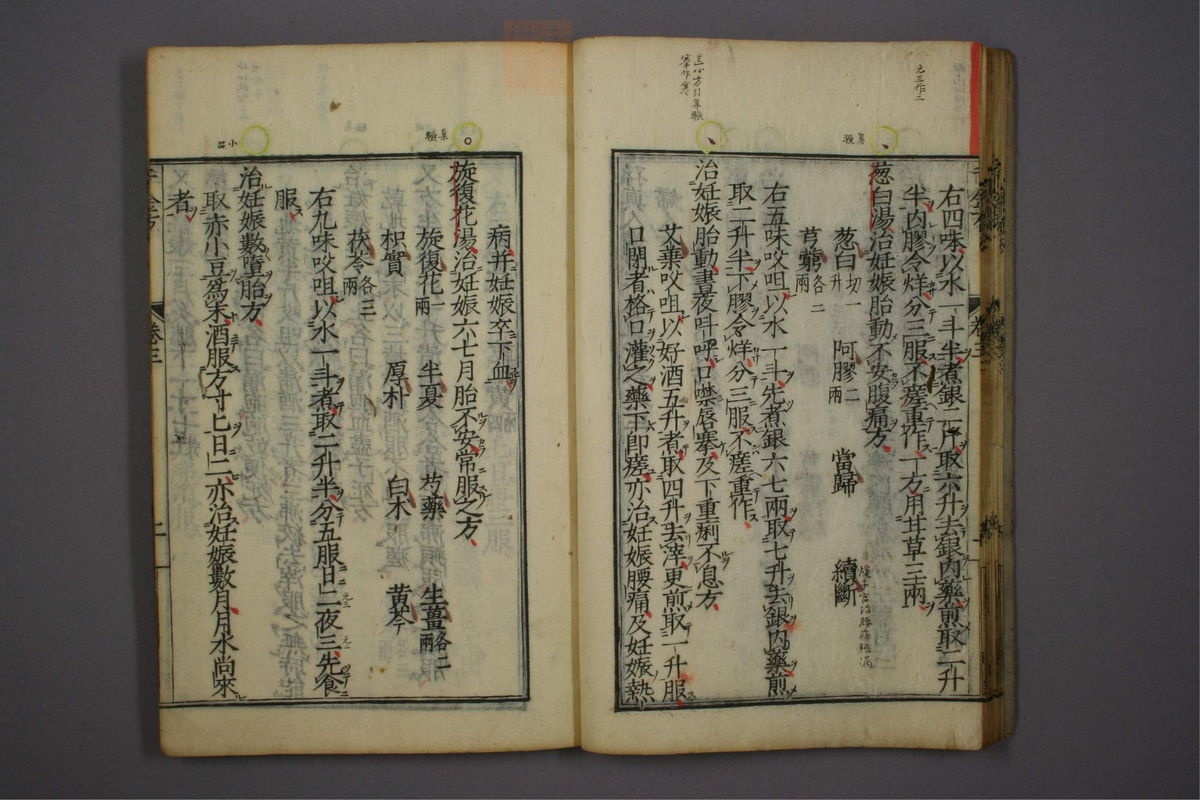 右四味以水一斗半煮銀二斤取六升去銀内藥煎取二升
半内膠令烊分三服不瘥重作一方用甘草三兩
葱白湯治妊娠胎動不安腹痛方
葱白切一升 阿膠二兩 當歸 續斷
芎藭各二兩
右五味㕮咀以水一斗先煮銀六七兩取七升去銀内藥煎
取二升半下膠令烊分三服不瘥重作
治妊娠胎動晝夜叫呼口噤唇搴及下重痢不息方
艾葉㕮咀以好酒五升煮取四升去滓更煎取一升服
口閉者格口灌之藥下即瘥亦治妊娠腰痛及妊娠熱
病并妊娠卒下血
旋復花湯治妊娠六七月胎不安常服之方
旋復花一兩 半夏 芍藥 生薑各二兩
枳實 厚朴 白朮 黃芩
茯苓各三兩
右九味㕮咀以水一斗煮取二升半分五服日二夜三先食
服
治妊娠數墮胎方
取赤小豆爲末酒服方寸匕日二亦治妊娠數月月水尚來
者
卷三
元三作二
集驗
集驗
小品